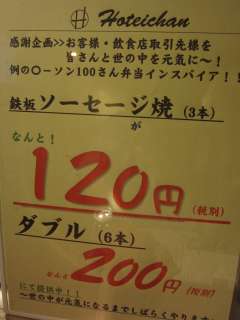 Hoteichan
感謝企画>>お客様・飲食店取引先様を
皆さんと世の中を元気に〜!
例の〇ーソン100さん弁当インスパイア!!
鉄板ソーセージ焼(3本)
が
なんと!
120円(税別)
ダブル(6本)
なんと
200円(税別)
にて提供中!!
〜世の中が元気になるまでしばらくやります